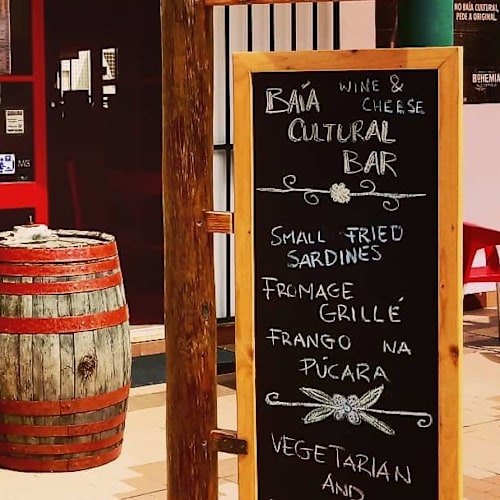 BAÍA WINE & CHEESE
CULTURAL
BAR
SMALL FRIED
SARDINES
FROMAGE
GRILLÉ
FRANGO NA
PÚCARA
VEGETARIAN
AND
NO BAÍA CULTURAL,
PEDE A ORIGINAL.
BOHEMIA